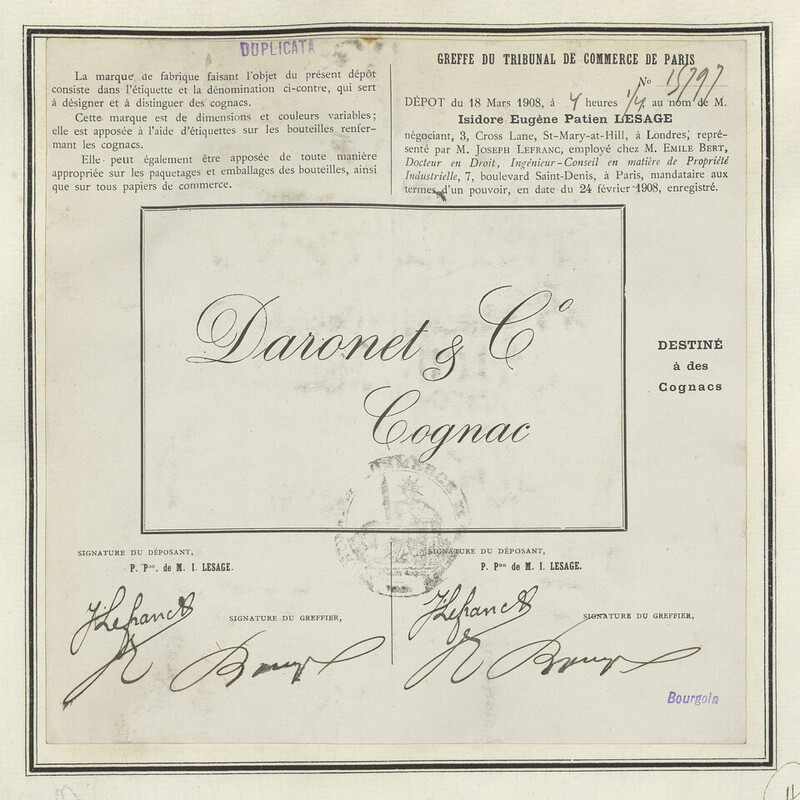 DUPLICATA
La marque de fabrique faisant l'objet du présent dépôt
consiste dans l'étiquette et la dénomination ci-contre, qui sert
à désigner et à distinguer des cognacs.
Cette marque est de dimensions et couleurs variables;
elle est apposée à l'aide d'étiquettes sur les bouteilles renfer-
mant les cognacs.
Elle peut également être apposée de toute manière
appropriée sur les paquetages et emballages des bouteilles, ainsi
que sur tous papiers de commerce.
GREFFE DU TRIBUNAL DE COMMERCE DE PARIS
No 15797
DÉPOT du 18 Mars 1908, à 4 heures 1/4 au nom de M.
Isidore Eugène Patien LESAGE
négociant, 3, Cross Lane, St-Mary-at-Hill, à Londres, repré-
senté par M. JOSEPH LEFRANC, employé chez M. EMILE BERT,
Docteur en Droit, Ingénieur-Conseil en matière de Propriété
Industrielle, 7, boulevard Saint-Denis, à Paris, mandataire aux
termes d'un pouvoir, en date du 24 février 1908, enregistré.
Daronet & Co
Cognac
DESTINÉ
à des
Cognacs
COMMERCE
SIGNATURE DU DÉPOSANT,
P. Pon. de M. I. LESAGE.
JLefranc
SIGNATURE DU GREFFIER,
SIGNATURE DU DÉPOSANT,
P. Pon de M. I. LESAGE.
JLefranc
SIGNATURE DU GREFFIER,
Bourgoin